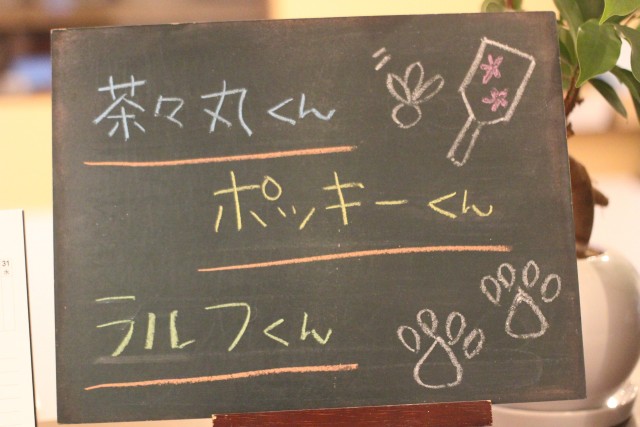 茶々丸くん
ポッキーくん
ラルフくん
31